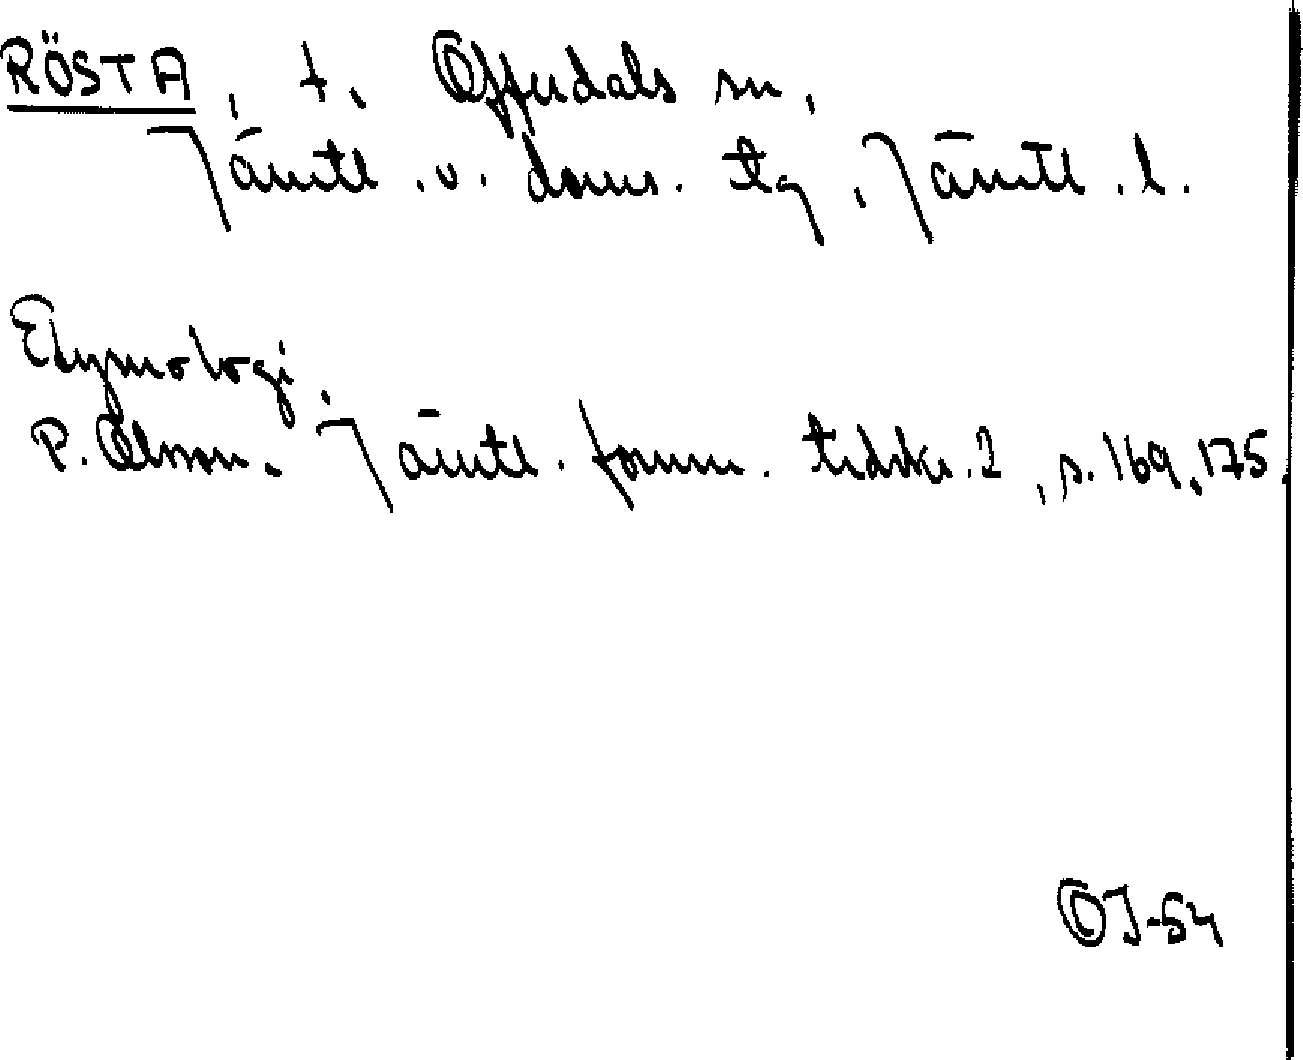 RÖSTA, t. Offerdals sn,
Jämtl. v. doms. tg, Jämtl. l.
Etymologi.
P. Olsson. Jämtl. fornm. tidskr. 2, s. 169, 175.
OJ-54